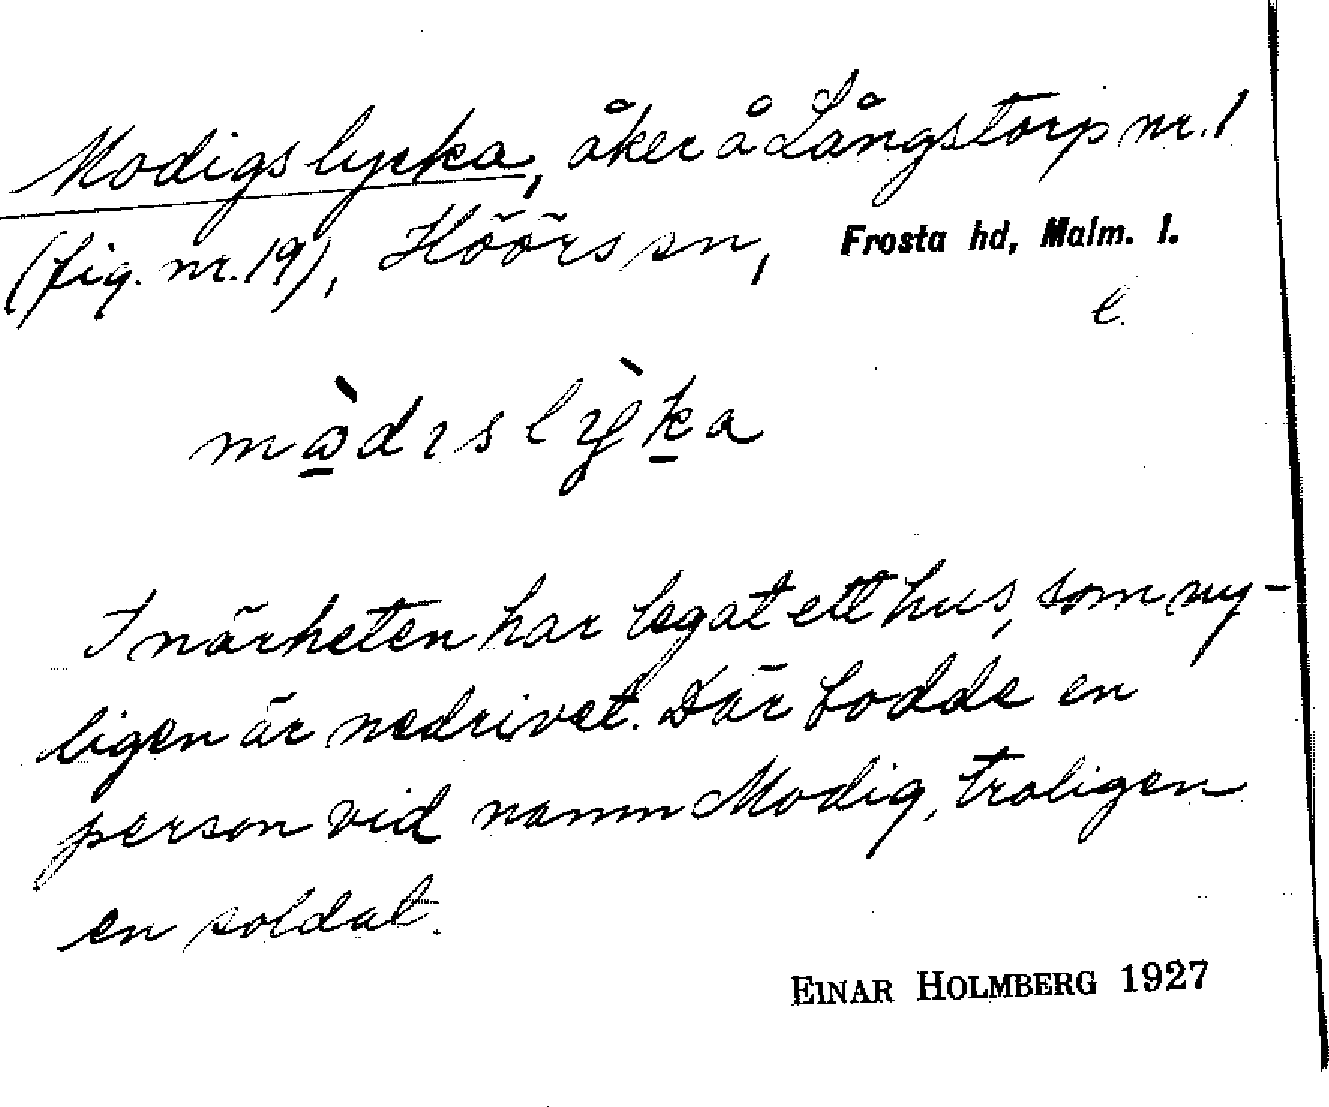 Modigslycka, åker å Långstorp nr. 1
(fig. nr. 19), Höörs sn, Frosta hd, Malm. l.
l.
I närheten har legat ett hus, som ny-
ligen är nedrivet. Där bodde en
person vid namn Modig, troligen
en soldat.
EINAR HOLMBERG 1927